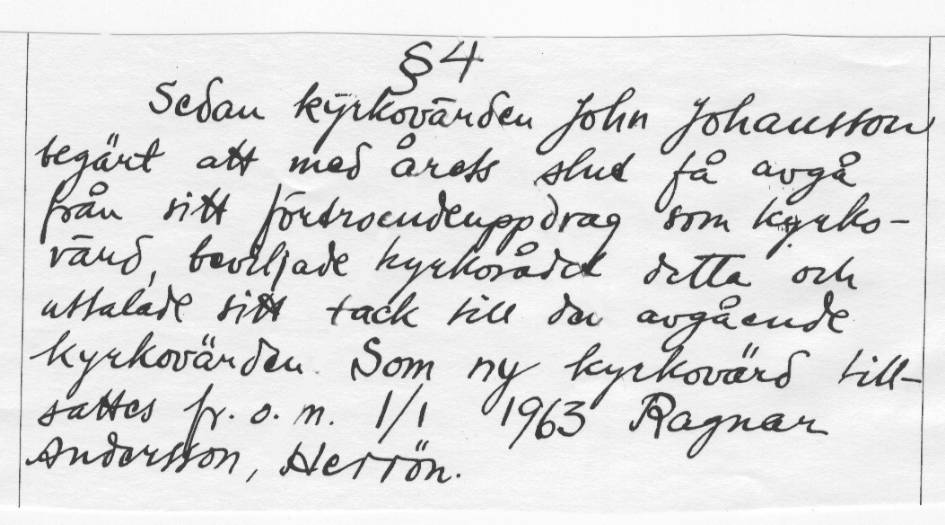 § 4
Sedan kyrkovärden John Johansson
begärt att med årets slut få avgå
från sitt förtroendeuppdrag som kyrko-
värd, beviljade kyrkorådet detta och
uttalade sitt tack till den avgående
kyrkovärden. Som ny kyrkovärd till-
sattes fr. o. m. 1/1 1963 Ragnar
Andersson, Herrön.